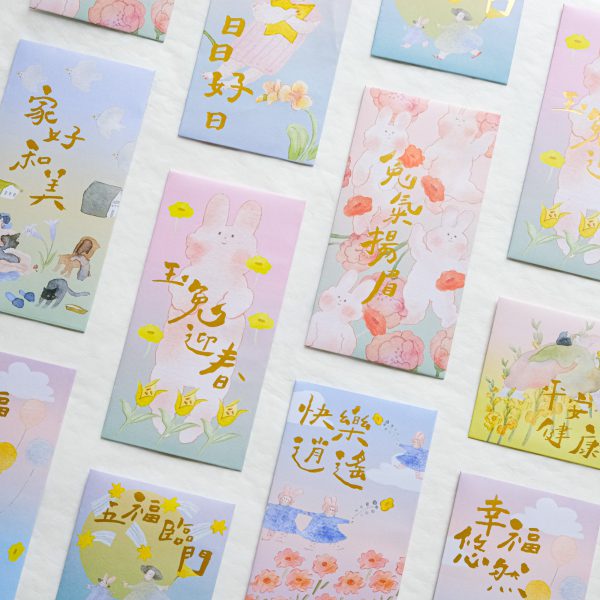 日日好日
家好
和美
兔氣揚眉
玉兔迎春
玉兔迎
快樂
逍遙
平安
健康
五福臨門
幸福
悠然
福